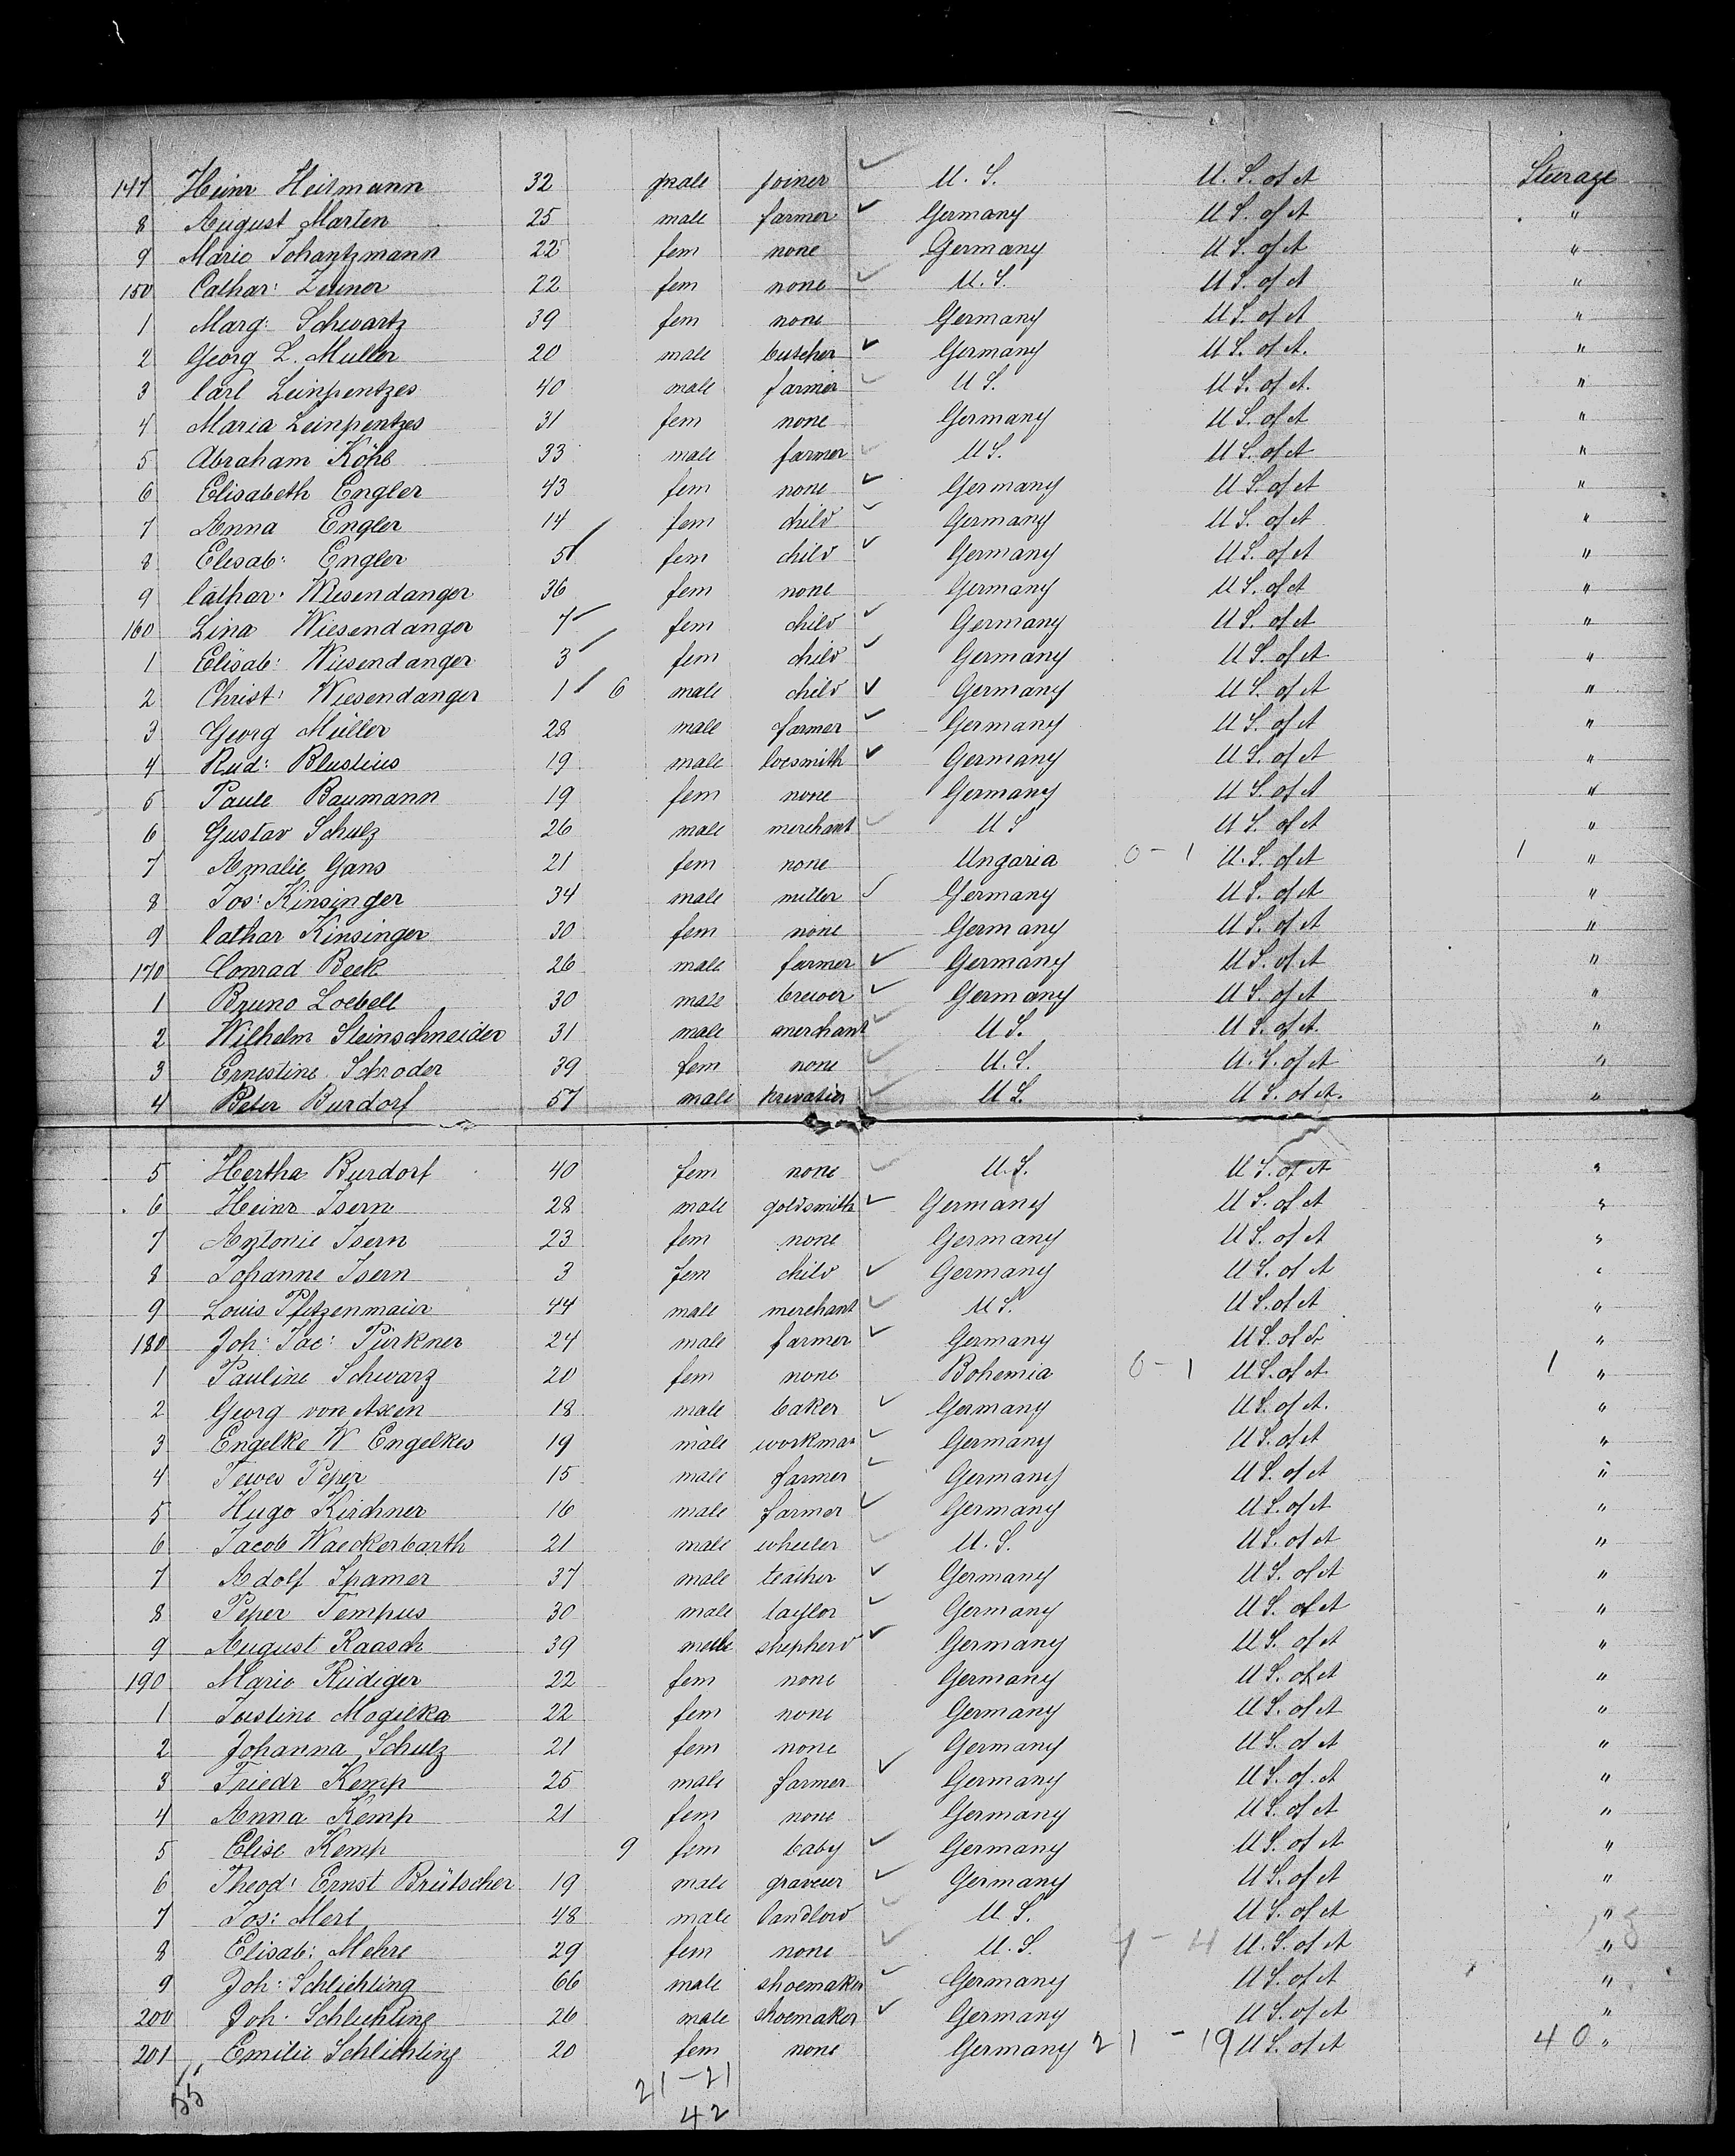 147 Heinr Heitmann 32 male joiner ✓ U. S. U. S. of A Steerage
8 August Marten 25 male farmer ✓ Germany U S. of A "
9 Marie Johantzmann 22 fem none Germany U S. of A "
150 Cathar: Zeuner 22 fem none ✓ U. S. U S. of A "
1 Marg: Schwartz 39 fem none Germany U S. of A "
2 Georg L. Muller 20 male butscher ✓ Germany U S. of A. "
3 Carl Leinpentzes 40 male farmer ✓ U S. U S. of A. "
4 Maria Leinpentzes 31 fem none Germany U S. of A "
5 Abraham Köhl 33 male farmer ✓ U S. U S. of A "
6 Elisabeth Engler 43 fem none ✓ Germany U S. of A "
7 Anna Engler 14 fem child ✓ Germany U S. of A "
8 Elisab: Engler 5 fem child ✓ Germany U S. of A "
9 Cathar: Wiesendanger 36 fem none Germany U S. of A "
160 Lina Wiesendanger 7 fem child ✓ Germany U S. of A "
1 Elisab: Wiesendanger 3 fem child ✓ Germany U S. of A "
2 Christ: Wiesendanger 1 6 male child ✓ Germany U S. of A "
3 Georg Müller 28 male farmer ✓ Germany U S. of A "
4 Rud: Blustius 19 male locsmith ✓ Germany U S. of A "
5 Paule Baumann 19 fem none Germany U S. of A "
6 Gustav Schulz 26 male merchant ✓ U S U S. of A "
7 Amalie Gans 21 fem none Ungaria 0 - 1 U. S. of A 1 "
8 Jos: Kinsinger 34 male miller ✓ Germany U S. of A "
9 Cathar Kinsinger 30 fem none Germany U S. of A "
170 Conrad Beck 26 male farmer ✓ Germany U S. of A "
1 Bruno Loebell 30 male brewer ✓ Germany U S. of A "
2 Wilhelm Steinschneider 31 male merchant ✓ U S. U S. of A. "
3 Ernestine Schroder 39 fem none ✓ U. S. U. S. of A "
4 Peter Burdorf 57 male privatier ✓ U S. U S. of A. "
5 Hertha Burdorf 40 fem none ✓ U. S. U S. of A "
6 Heinr Isern 28 male goldsmith ✓ Germany U S. of A "
7 Antonie Isern 23 fem none Germany U S. of A "
8 Johanne Isern 3 fem child ✓ Germany U S. of A "
9 Louis Pfitzenmaier 44 male merchant ✓ U S. U S. of A "
180 Joh: Jac: Pürkner 24 male farmer ✓ Germany U S. of A "
1 Pauline Schwarz 20 fem none Bohemia 0 - 1 U S. of A 1 "
2 Georg von Axen 18 male baker ✓ Germany U S. of A. "
3 Engelke W Engelkes 19 male workman ✓ Germany U S. of A "
4 Tewes Peper 15 male farmer ✓ Germany U S. of A "
5 Hugo Kirchner 16 male farmer ✓ Germany U S. of A "
6 Jacob Waeckerbarth 21 male wheeler ✓ U. S. U S. of A "
7 Adolf Spamer 37 male teather ✓ Germany U S. of A "
8 Peper Tempus 30 male taylor ✓ Germany U S. of A "
9 August Raasch 39 male shepherd ✓ Germany U S. of A "
190 Marie Rüdiger 22 fem none Germany U S. of A "
1 Justine Mogilka 22 fem none Germany U S. of A "
2 Johanna Schulz 21 fem none Germany U S. of A "
3 Friedr Kemp 25 male farmer ✓ Germany U S. of A "
4 Anna Kemp 21 fem none Germany U S. of A "
5 Elise Kemp 9 fem baby ✓ Germany U S. of A "
6 Theod: Ernst Brütscher 19 male graveur ✓ Germany U S. of A "
7 Jos: Merl 48 male landlord ✓ U S. U S. of A "
8 Elisab: Mehre 29 fem none ✓ U. S. 4 U. S. of A "
9 Joh: Schlichting 66 male shoemaker ✓ Germany U S. of A "
200 Joh. Schlichting 26 male shoemaker ✓ Germany U S. of A "
201 Emilie Schlichting 20 fem none Germany 21 - 19 U S. of A 40 "
55 21 - 21
42